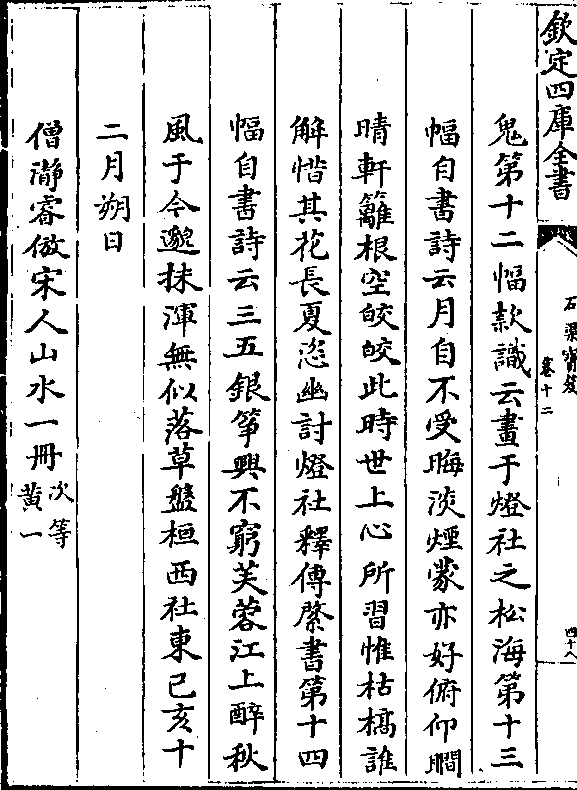 欽定四庫全書
石渠寶笈
卷十二
四十八
鬼第十二幅款識云畫于燈社之松海第十三
幅自書詩云月自不受晦淡煙蒙亦好俯仰瞷
晴軒籬根空皎皎此時世上心所習惟枯槁誰
解惜其花長夏恣幽討燈社釋傳綮書第十四
幅自書詩云三五銀箏興不窮芙蓉江上醉秋
風于今邈抹渾無似落草盤桓西社東己亥十
二月朔日
僧瀞睿倣宋人山水一冊次等
黄一